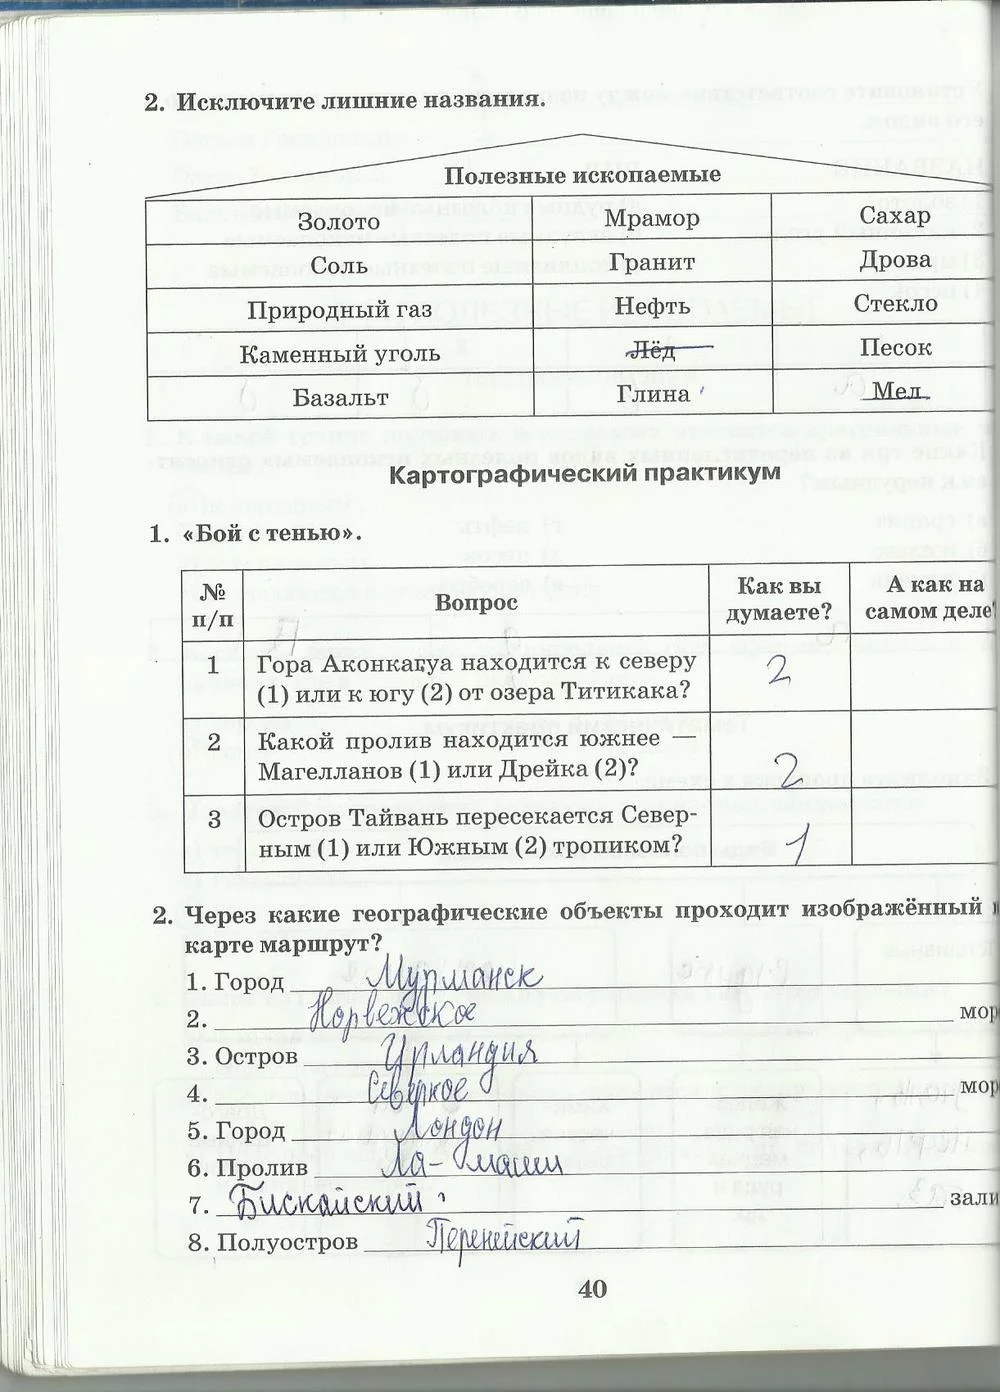 2. Исключите лишние названия.
Полезные ископаемые
Золото Мрамор Сахар
Соль Гранит Дрова
Природный газ Нефть Стекло
Каменный уголь Лёд Песок
Базальт Глина Мел
Картографический практикум
1. «Бой с тенью».
№ п/п Вопрос Как вы думаете? А как на самом деле?
1 Гора Аконкагуа находится к северу
(1) или к югу (2) от озера Титикака? 2
2 Какой пролив находится южнее —
Магелланов (1) или Дрейка (2)? 2
3 Остров Тайвань пересекается Север-
ным (1) или Южным (2) тропиком? 1
2. Через какие географические объекты проходит изображённый
карте маршрут?
1. Город Мурманск
2. Норвежское мор
3. Остров Ирландия
4. Северное мор
5. Город Лондон
6. Пролив Ла-манш
7. Бискайский зали
8. Полуостров Перенейский
40